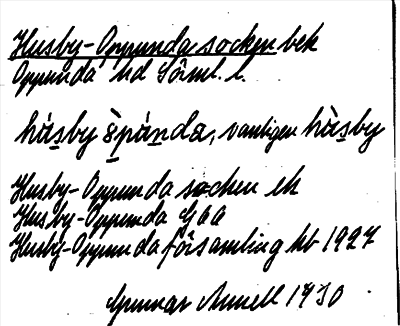 Husby-Oppunda socken bek
Oppunda hd Sörml. l.
hùsby òpùnda, vanligen hùsby
Husby-Oppunda socken ek
Husby-Oppunda GAA
Husby-Oppunda församling kb 1927
Gunnar Arnell 1930